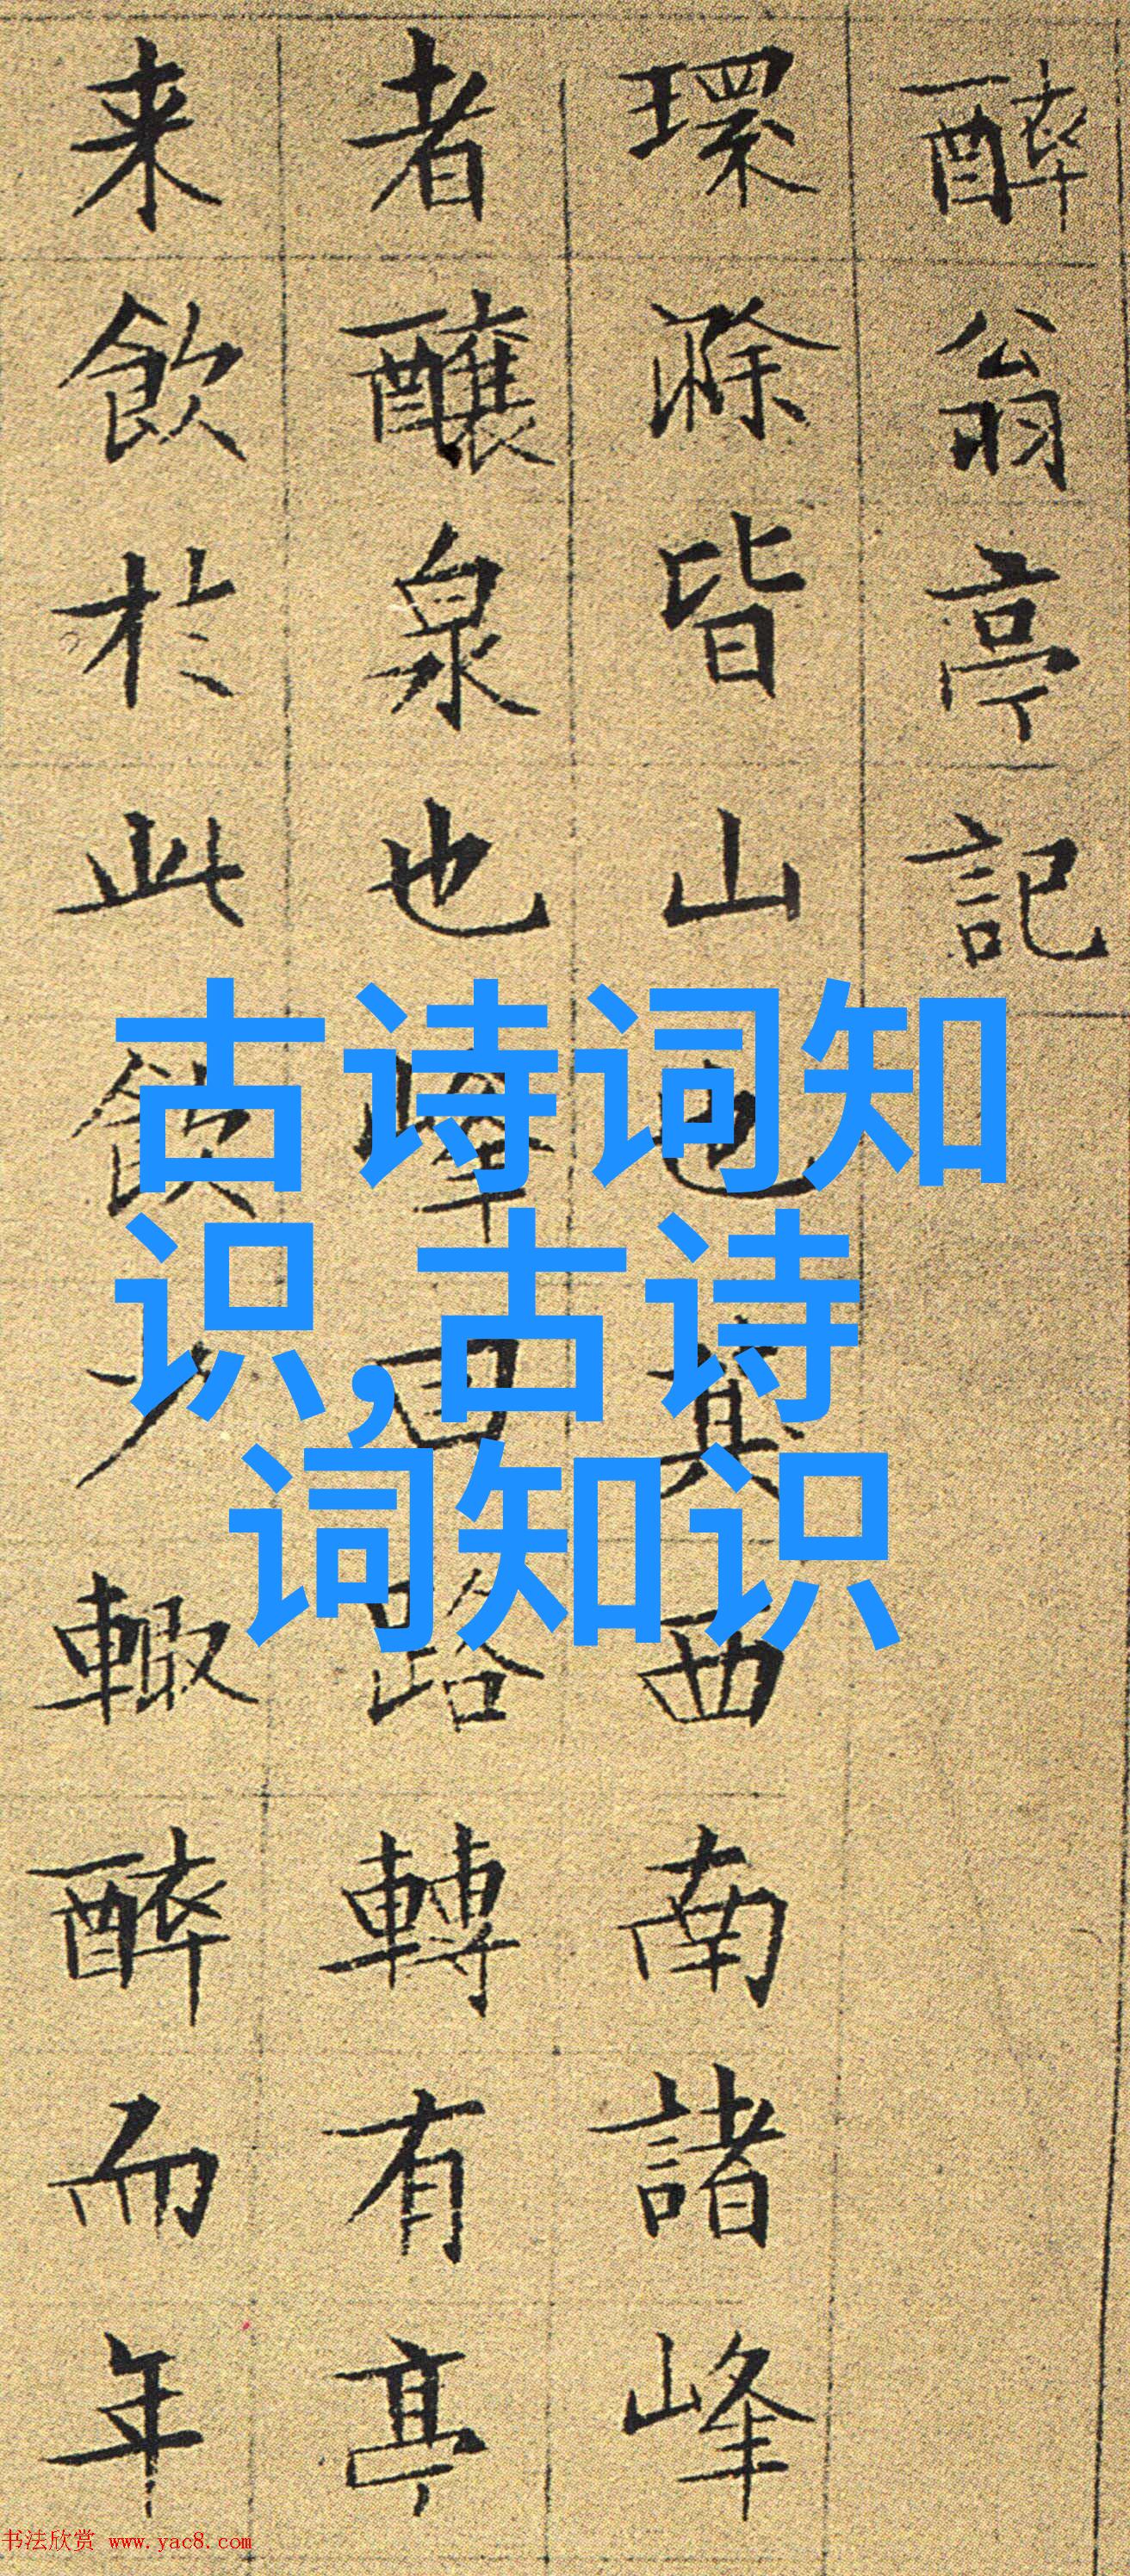 醉翁亭記
環滁皆山也其西南諸峰
者釀泉也峰回路轉有亭
来飲於此飲少輒醉而年
古诗词知
识,古诗
词知识
书法欣赏 www.yac8.com